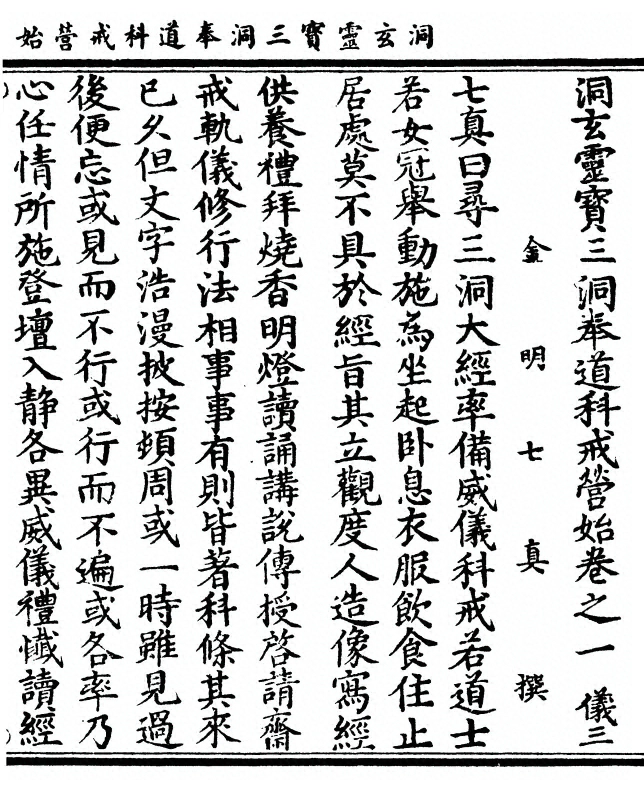 洞玄靈寶三洞奉道科戒營始
洞玄靈寶三洞奉道科戒營始卷之一 儀三
金明七真撰
七真曰尋三洞大經率備威儀科戒若道士
若女冠舉動施為坐起卧息衣服飲食住止
居處莫不具於經旨其立觀度人造像寫經
供養禮拜燒香明燈讀誦講說傳授啓請齋
戒軌儀修行法相事事有則皆著科條其來
已久但文字浩漫披按頓周或一時雖見過
後便忘或見而不行或行而不遍或各率乃
心任情所施登壇入静各異威儀禮懺讀經